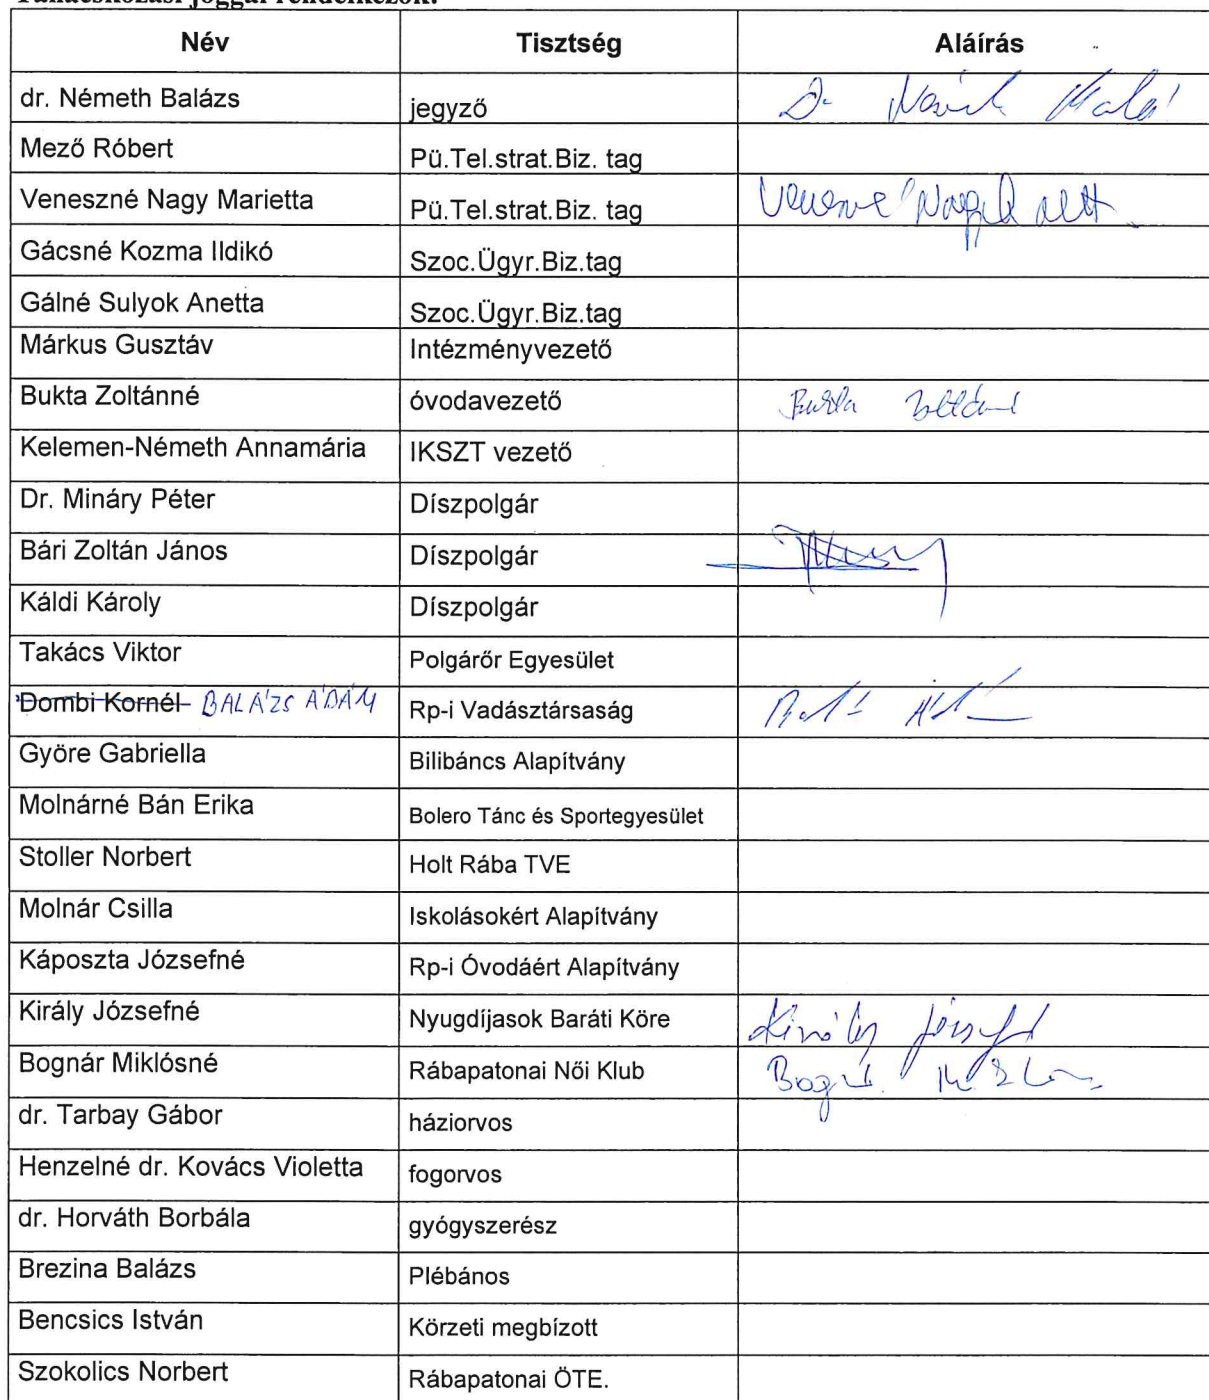 Tanácskozási joggal rendelkezők:
Név Tisztség Aláírás
dr. Németh Balázs jegyző
Mező Róbert Pü.Tel.strat.Biz. tag
Veneszné Nagy Marietta Pü.Tel.strat.Biz. tag
Gácsné Kozma Ildikó Szoc.Ügyr.Biz.tag
Gálné Sulyok Anetta Szoc.Ügyr.Biz.tag
Márkus Gusztáv Intézményvezető
Bukta Zoltánné óvodavezető
Kelemen-Németh Annamária IKSZT vezető
Dr. Mináry Péter Díszpolgár
Bári Zoltán János Díszpolgár
Káldi Károly Díszpolgár
Takács Viktor Polgárőr Egyesület
Dombi Kornél BALÁZS ÁDÁM Rp-i Vadásztársaság
Györe Gabriella Bilibáncs Alapítvány
Molnárné Bán Erika Bolero Tánc és Sportegyesület
Stoller Norbert Holt Rába TVE
Molnár Csilla Iskolásokért Alapítvány
Káposzta Józsefné Rp-i Óvodáért Alapítvány
Király Józsefné Nyugdíjasok Baráti Köre
Bognár Miklósné Rábapatonai Női Klub
dr. Tarbay Gábor háziorvos
Henzelné dr. Kovács Violetta fogorvos
dr. Horváth Borbála gyógyszerész
Brezina Balázs Plébános
Bencsics István Körzeti megbízott
Szokolics Norbert Rábapatonai ÖTE.